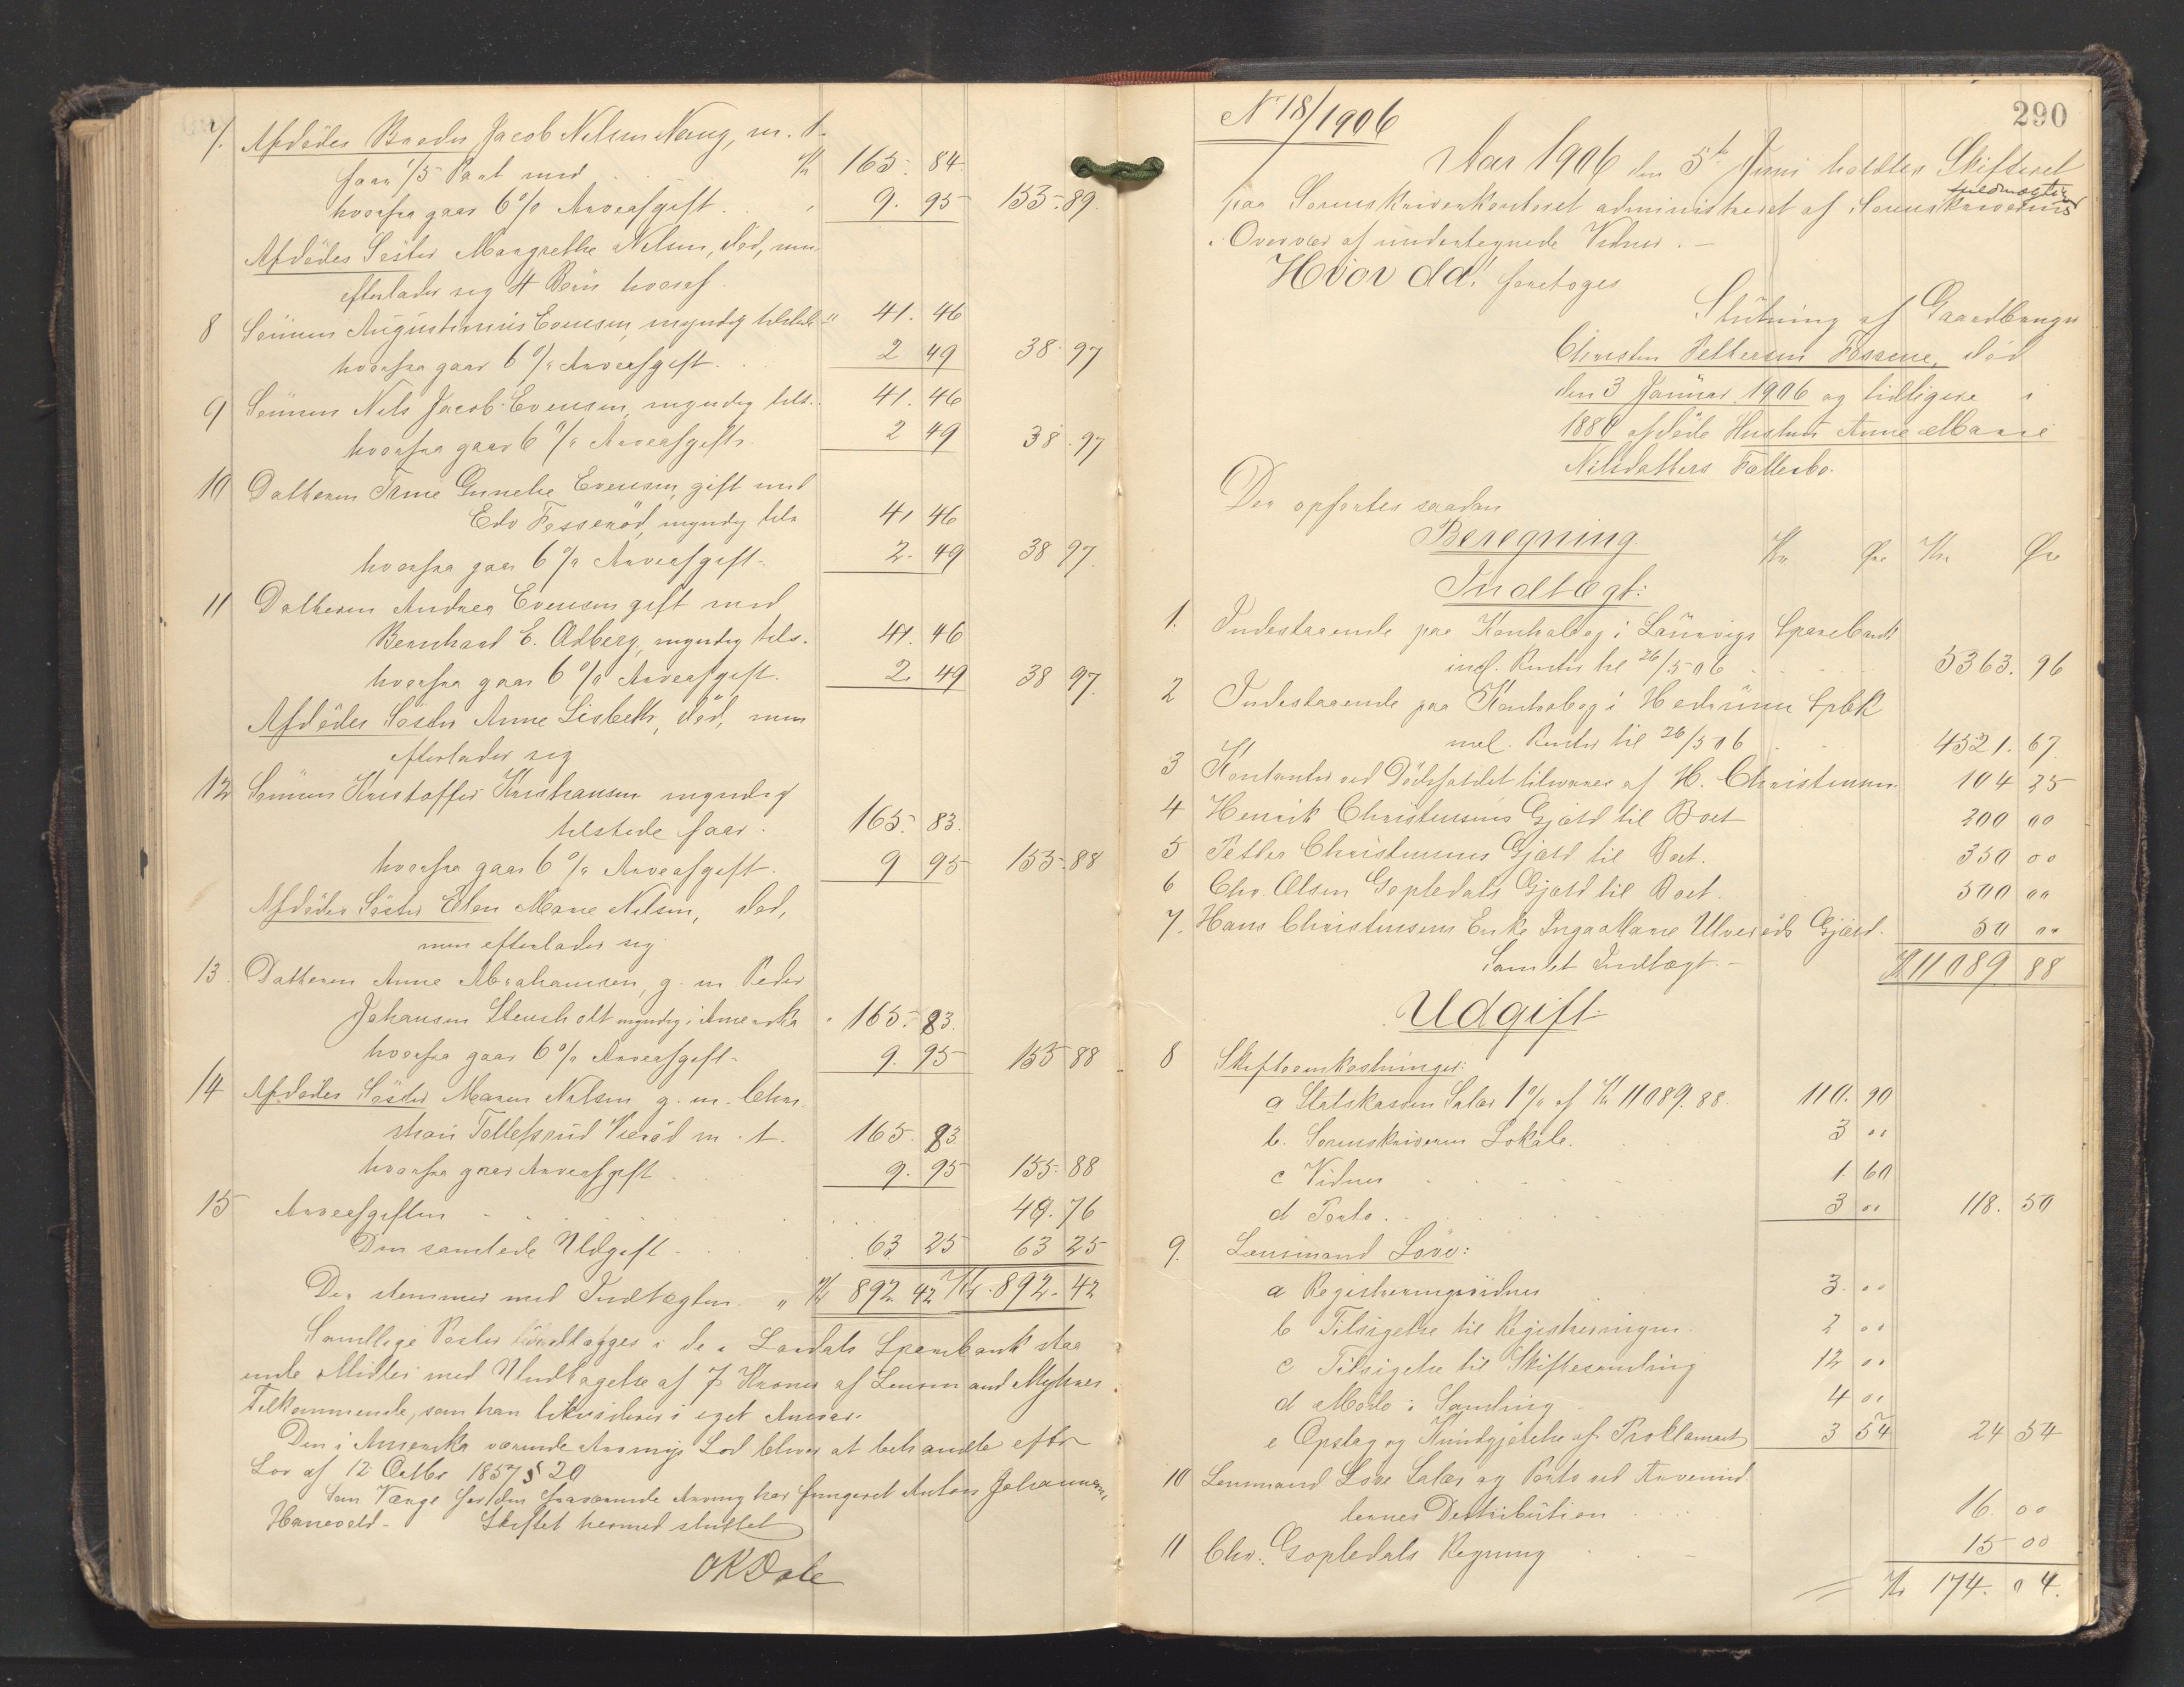 7. Afdødes Broder Jacob Nilsen Naug, m. t.
faar 1/5 Part med Kr 165. 84
hvorfra gaar 6% Arveafgift 9. 95 155. 89.
Afdødes Søster Margrethe Nilsen, død, men
efterlader sig 4 Børn hvoraf
8 Sønnen Augustinius Evensen, myndig tilstede " 41. 46
hvorfra gaar 6% Arveafgift 2 49 38. 97
9 Sønnen Nils Jacob Evensen, myndig tils. 41. 46
hvorfra gaar 6% Arveafgift 2 49 38. 97
10 Datteren Gunelie Evensen, gift med
Edv myndig tils 41 46
hvorfra gaar 6% Arveafgift 2. 49 38 97.
11 Datteren Andrea Evensen gift med
Bernhard E. myndig tils. 41. 46
hvorfra gaar 6% Arveafgift. 2. 49 38 97.
Afdødes Søster Anne Lisbeth, død, men
efterlader sig
12 Sønnen Kristoffer Kristiansen myndig
tilstede faar. 165. 83.
hvorfra gaar 6% Arveafgift. 9 95 155. 88
Afdødes Søster Elen Marie Nilsen, død,
men efterlader sig
13. Datteren Anne Abrahamsen, g. m. Peder
Johansen Stensholt myndig i Amerika " 165. 83.
hvorfra gaar 6% Arveafgift 9. 95 155 88
14 Afdødes Søster Maren Nilsen g. m. Chri-
stian m. t. 165. 83
hvorfra gaar Arveafgift 9. 95 155. 88
15 Arveafgiften 49. 76
Den samlede Udgift 63. 25 63 25
Der stemmer med Indtægten. " Kr 892. 42 Kr. 892. 42
Samtlige Poster i de i Lardals Sparebank sta-
ende Midler med Undtagelse af 7 Kroner af Lensmand
Tilkommende, som han likviderer i eget Ansvar.
Den i Amerika værende Arvings Lod bliver at behandle efter
Lov af 12 Octbr 1857 § 20
Som Værge for den fraværende Arving har fungeret Anton Johannesen
Hanevold. Skiftet hermed sluttet
OKDale
290
No 18/1906
Aar 1906 den 5te Juni holdtes Skifteret
fuldmægtig
paa Sorenskriverkontoret administreret af Sorenskriverens
i Overvær af undertegnede Vidner.
Hvor da! foretoges
Slutning af Gaardbruger
Christen Pettersen død
den 3 Januar 1906 og tidligere i
1880 afdøde Hustru Anne Marie
Nilsdatters Fællesbo.
Der opførtes saadan
Beregning Kr Øre Kr Øre
Indtægt:
1. Indestaaende paa Kontrabog i Laurvigs Sparebank
incl. Renter til 26/5 06 5363. 96
2 Indestaaende paa Kontrabog i Hedrum Spbk
incl. Renter til 26/5 06 4521. 67
3 Kontanter ved Dødsfaldet tilsvares af H. Christensen 104 25
4 Henrik Christensens Gjæld til Boet 200 00
5 Petter Christensens Gjæld til Boet. 350 00
6 Chr. Olsen Gopledals Gjæld til Boet. 500 00
7. Hans Christensens Enke Inga Marie Ulverøds Gjæld. 50 00
Samlet Indtægt. Kr 11089. 88
Udgift
8 Skifteomkostninger:
a Statskassen Salær 1% af Kr 11089. 88. 110. 90
b. Sorenskriveren Lokale. 3 00
c Vidner 1. 60
d Porto. 3 00 118. 50
9. Lensmand Løve:
a Registreringsvidner 3. 00
b Tilsigelse til Registreringen 2 00
c Tilsigelse til Skiftesamling 12 00
d Møde i Samling 4 00
e Opslag og Kundgjørelse af Proklamaet 3 54 24 54
10 Lensmand Løve Salær og Porto ved Arvemid-
lernes Distribution 16. 00
11 Chr. Gopledals Regning 15 00
Kr 174. 04.